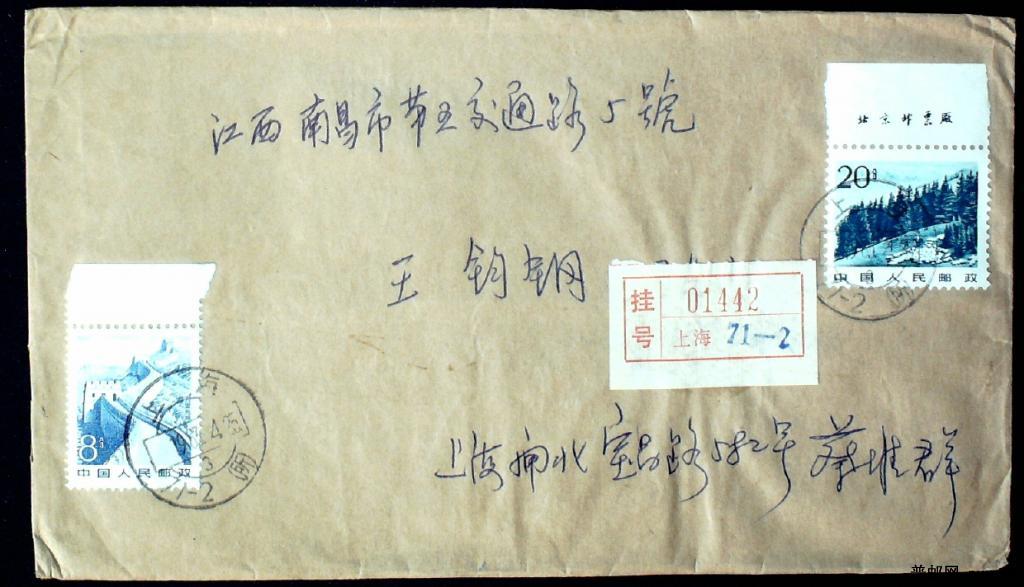 江西南昌市第五交通路5號
北京邮票厰
20分
中国人民邮政
王钧钢
挂号
01442
上海 71—2
8分
中国人民邮政
上海
71-2
上海闸北宝昌路
号 蔡
群
普邮网